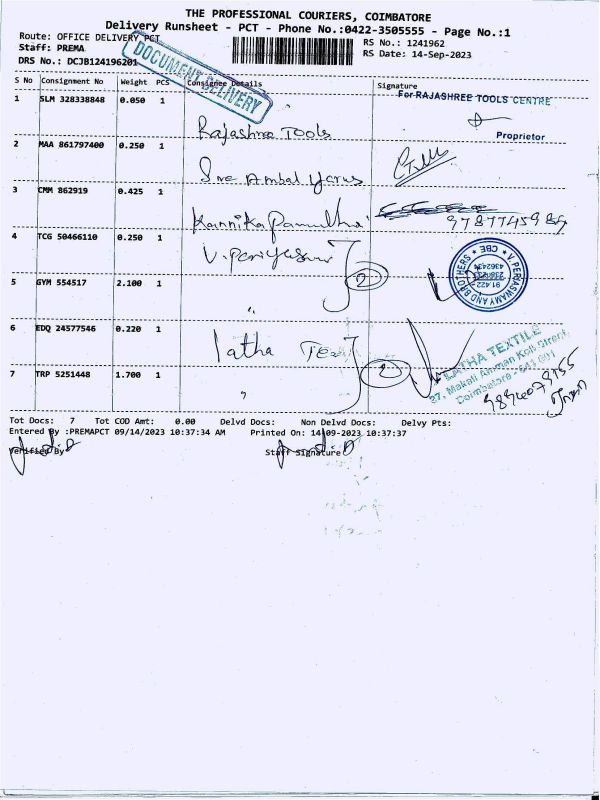 THE PROFESSIONAL COURIERS, COIMBATORE
Delivery Runsheet - PCT - Phone No.:0422-3505555 - Page No.:1
Route: OFFICE DELIVERY PCT
RS No.: 1241962
Staff: PREMA
RS Date: 14-Sep-2023
DRS No.: DCJB124196201
DOCUMENT DELIVERY
S No Consignment No Weight PCS Consignee Details Signature
For RAJASHREE TOOLS CENTRE
1 SLM 328338848 0.050 1
Rajashree Tools
Proprietor
2 MAA 861797400 0.250 1
Sree Ambal Yarns
3 CMM 862919 0.425 1
Kannika
4 TCG 50466110 0.250 1
V. Periyasamy
2
V. PERIASWAMY AND BROTHERS * CBE *
5 GYM 554517 2.100 1
"
6 EDQ 24577546 0.220 1
latha Tex
2
LATHA TEXTILE
27, Makali Amman Koil Street,
Coimbatore - 641 001
7 TRP 5251448 1.700 1
"
Tot Docs: 7 Tot COD Amt: 0.00 Delvd Docs: Non Delvd Docs: Delvy Pts:
Entered By :PREMAPCT 09/14/2023 10:37:34 AM Printed On: 14-09-2023 10:37:37
Verified By Staff Signature